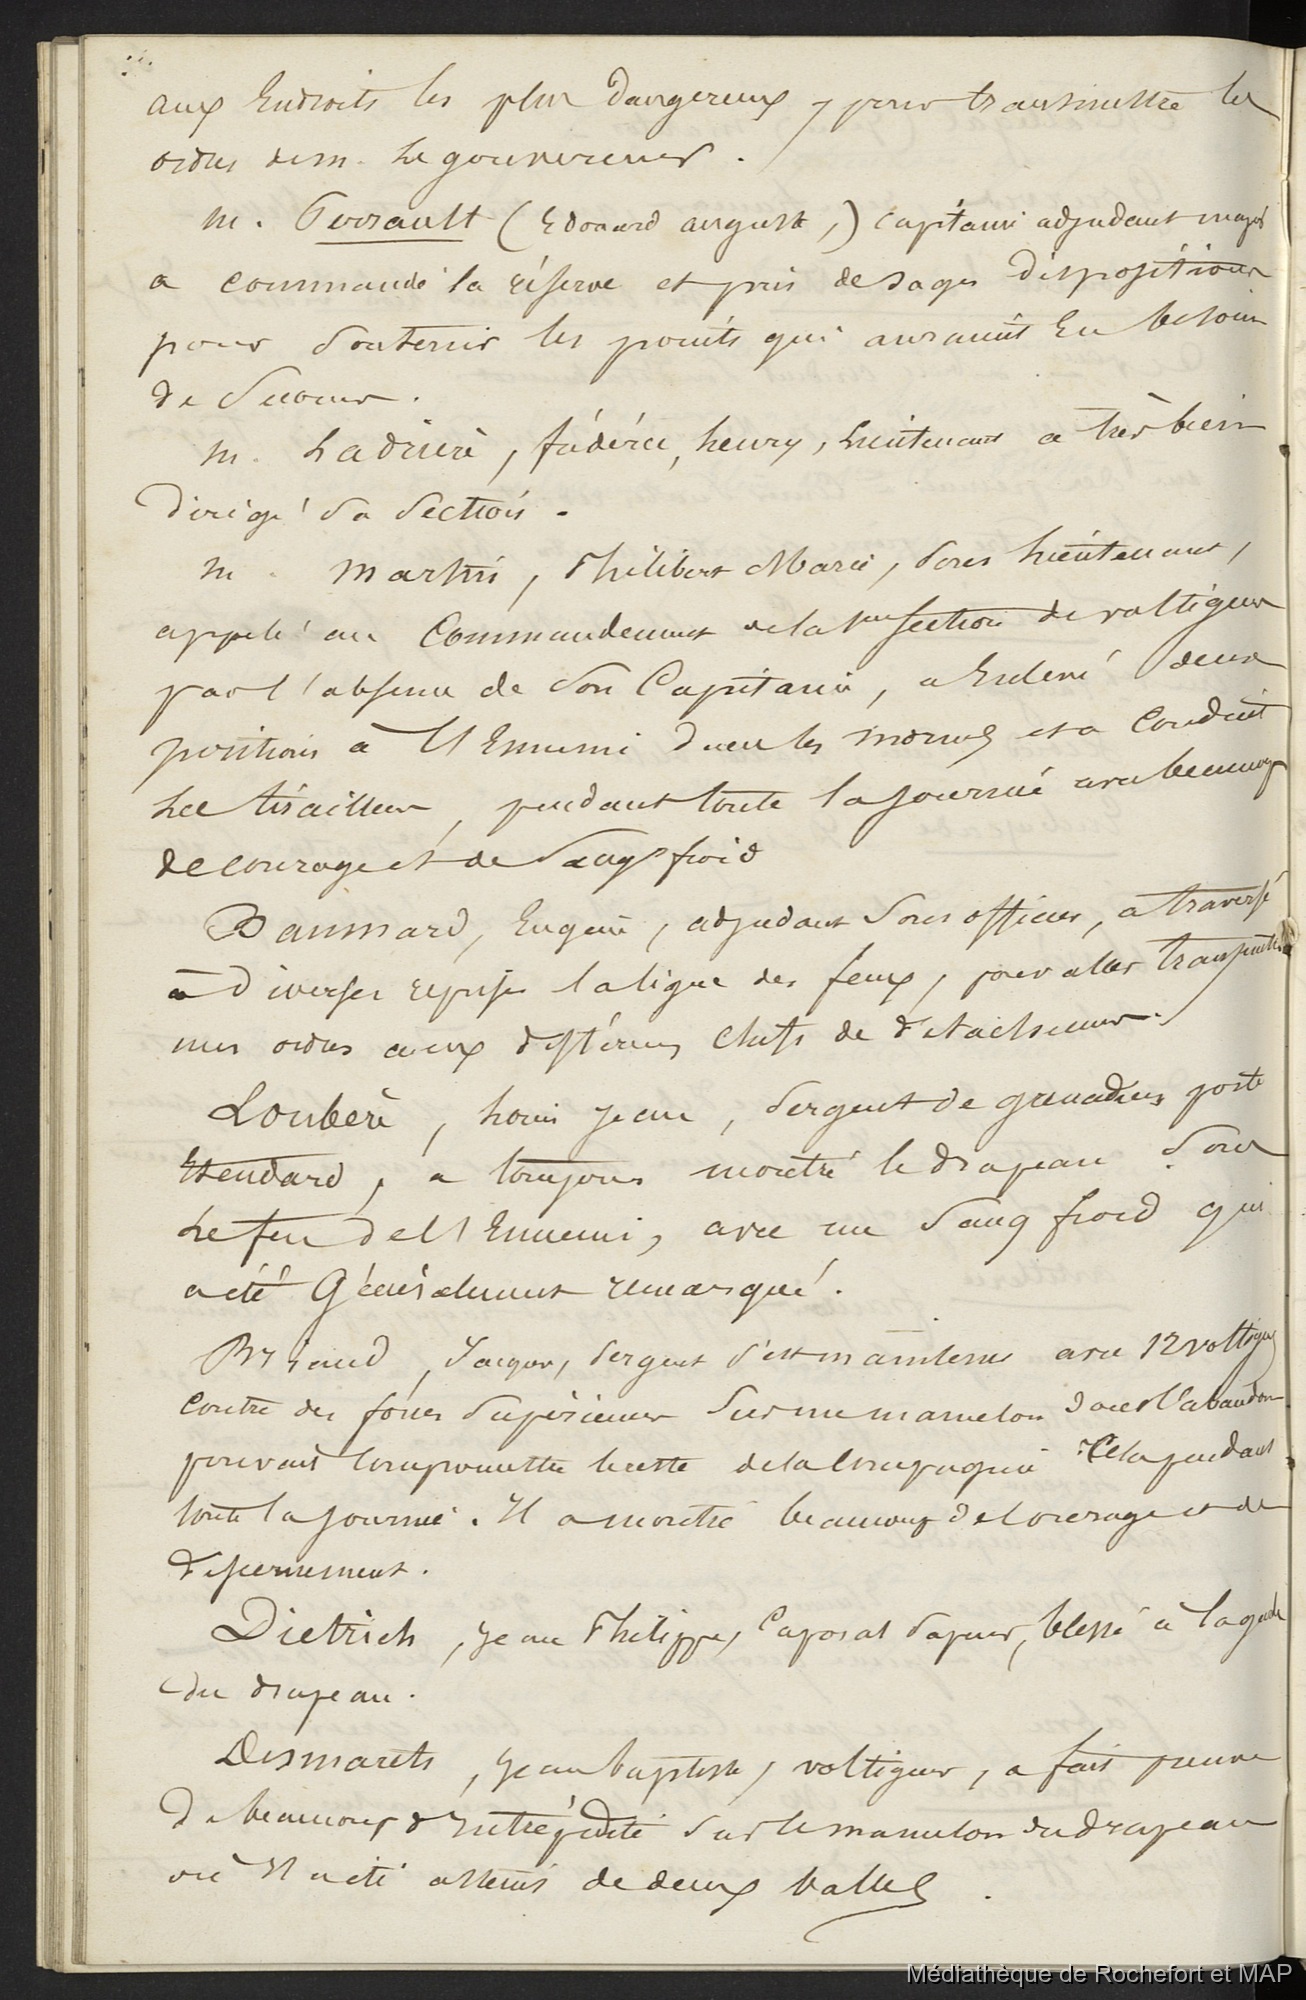 aux Endroits les plus Dangereux, pour transmettre les
ordres de m. Le gouverneur.
m. Perrault (Edouard auguste,) capitaine adjudant major
a commandé la réserve et pris de sages Dispositions
pour Soutenir les points qui auraient Eu besoin
de Secours.
m. Ladrière, fédéric, henry, Lieutenant a très bien
Dirigé Sa Section.
m. Martin, Philibert Marie, Sous Lieutenant,
appelé au Commandement de la section de voltigeurs
par l'absence de Son Capitaine, a Enlevé deux
positions à l'Ennemi dans les mornes et a Conduit
Les tirailleurs, pendant toute la journée avec beaucoup
de courage et de Sang froid
Baumard, Eugène, adjudant Sous officier, a traversé
à Diverses reprises la ligne des feux, pour aller transmettre
mes ordres aux différens Chefs de détachemens.
Loubère, Louis Jean, Sergent de grenadiers porte
Etendard, a toujours montré le drapeau Sous
Le feu de l'Ennemi, avec un Sang froid qui
a été Généralement remarqué.
Briaud, Jacques, Sergent s'est maintenu avec 12 voltigeurs
Contre des forces Supérieures Sur un mamelon Dont l'abandon
pouvait Compromettre le reste de la Compagnie Cela pendant
toute la journée. Il a montré beaucoup de Courage et de
discernement.
Dietrich, Jean Philippe, Caporal Sapeur, blessé à la garde
du drapeau.
Desmarets, Jean baptiste, voltigeur, a fait preuve
De beaucoup d'Intrépidité Sur le mamelon du drapeau
où Il a été atteint de deux balles.
Médiathèque de Rochefort et MAP